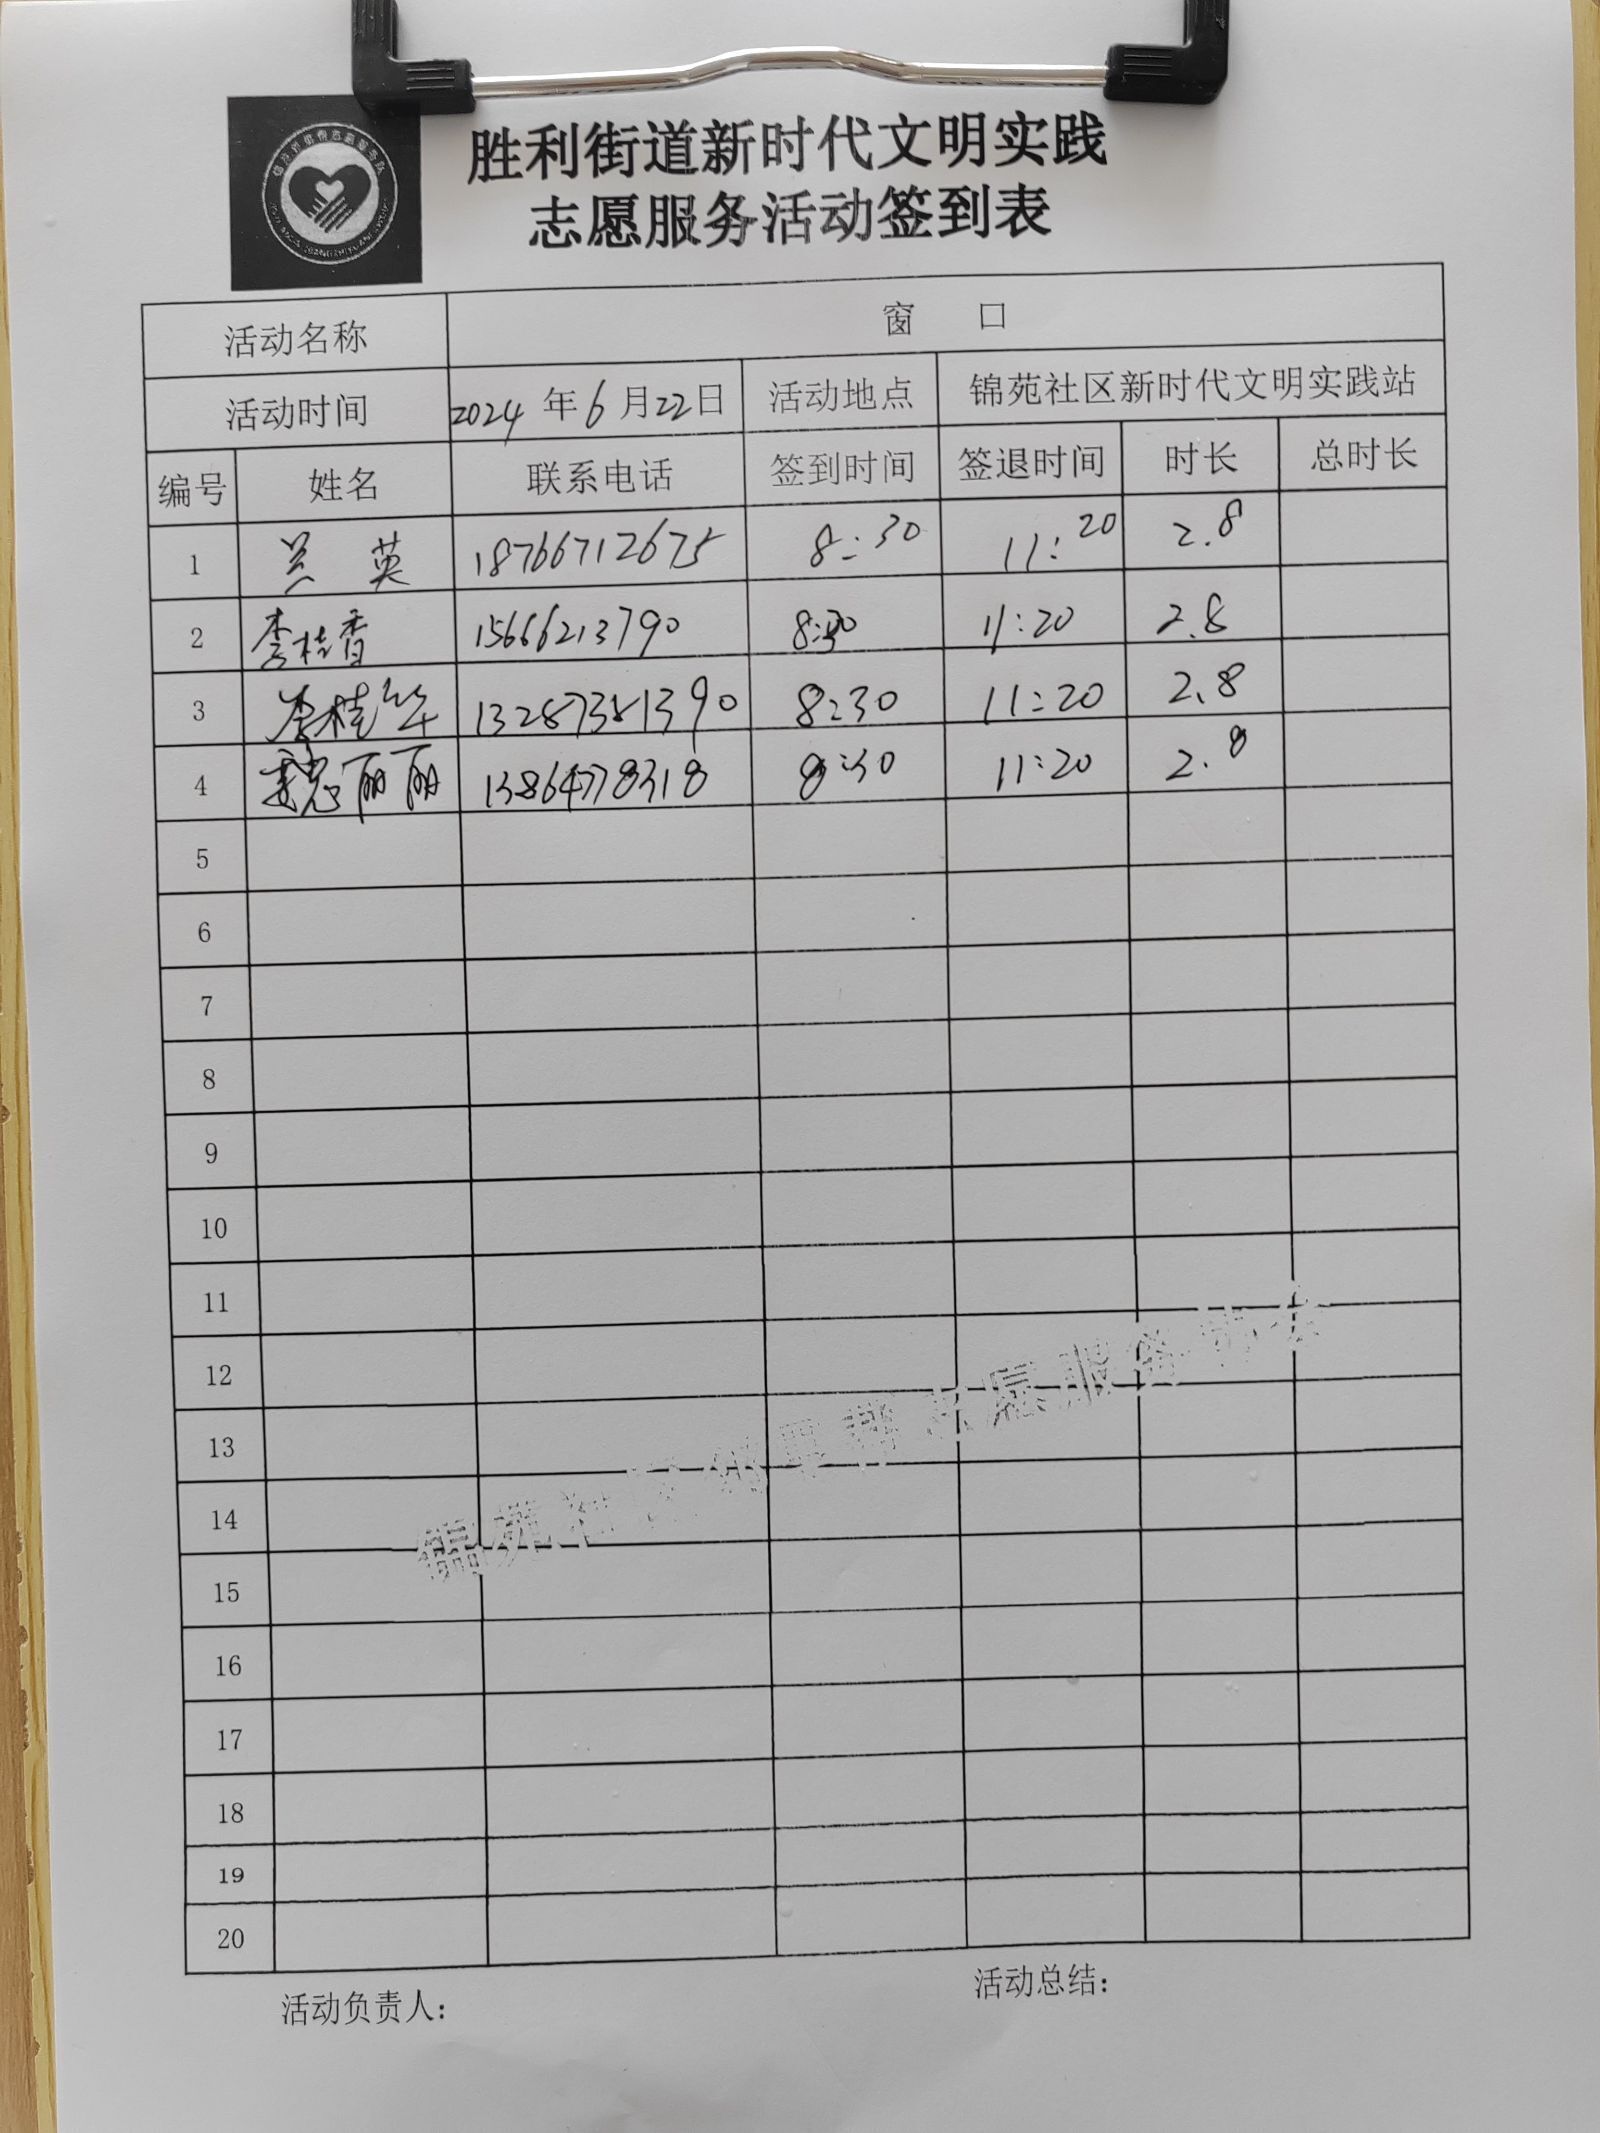 胜利街道新时代文明实践
志愿服务活动签到表
活动名称 窗 口
活动时间 2024年6月22日 活动地点 锦苑社区新时代文明实践站
编号 姓名 联系电话 签到时间 签退时间 时长 总时长
1 英 18766712675 8:30 11:20 2.8
2 李桂香 15666213790 8:30 11:20 2.8
3 李桂华 13287381390 8:30 11:20 2.8
4 丽丽 13864778318 8:30 11:20 2.8
5
6
7
8
9
10
11
12
13
14
15
16
17
18
19
20
锦苑社区 志愿服务
活动负责人: 活动总结: